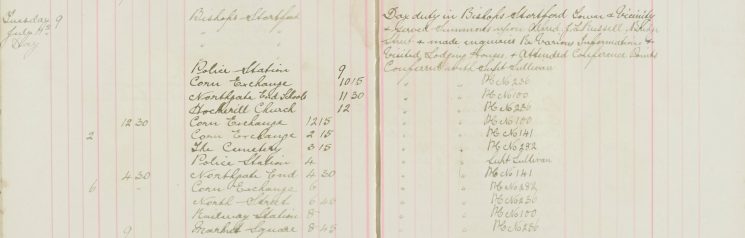 Tuesday 9 Bishops Stortford Day duty in Bishops Stortford Town & Vicinity
July 14th " " & served Summons upon David J. L. Russell
Day " " Street & made inquiries Re Various Informations &
Visited Lodging Houses & Attended Conference Points
Police Station 9 Conferred with Supt Sullivan
Corn Exchange 10 15 " " PC No 236
Northgate End Schools 11 30 " " PC No 100
Hockerill Church 12 " " PC No 236
12 30 Corn Exchange 12 15 " " PC No 100
2 Corn Exchange 2 15 " " PC No 141
The Cemetery 3 15 " " PC No 282
Police Station 4 " " Supt Sullivan
4 30 Northgate End 4 30 " " PC No 141
6 - Corn Exchange 6 " " PC No 282
North Street 6 40 " " PC No 236
Railway Station 8 " " PC No 100
9 Market Square 8 45 " " PC No 236